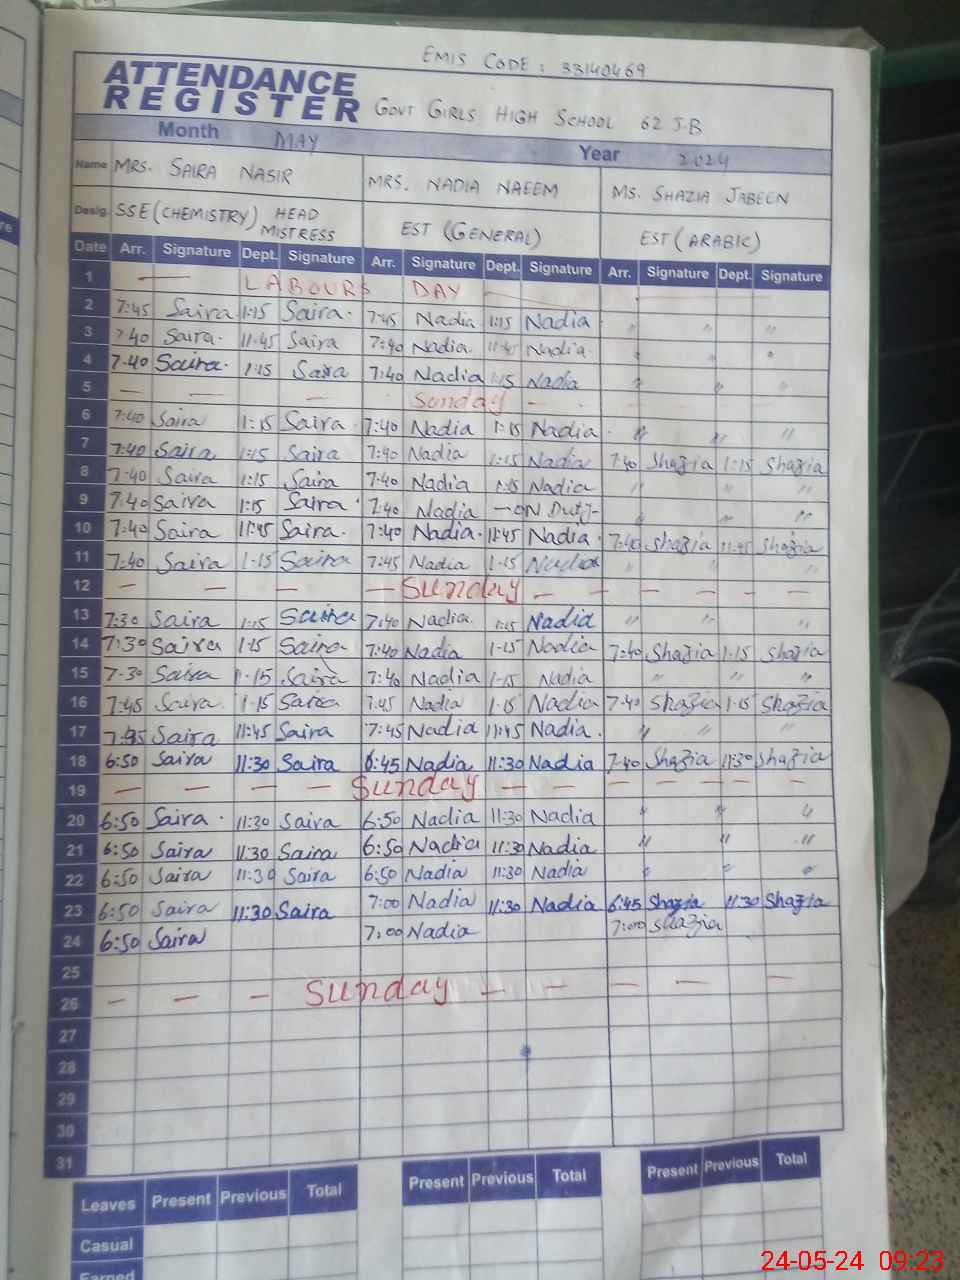 EMIS CODE : 33140469
ATTENDANCE
REGISTER GOVT GIRLS HIGH SCHOOL 62 J.B
Month MAY Year 2024
Name MRS. SAIRA NASIR MRS. NADIA NAEEM MS. SHAZIA JABEEN
Desig. SSE (CHEMISTRY) HEAD MISTRESS EST (GENERAL) EST (ARABIC)
Date Arr. Signature Dept. Signature Arr. Signature Dept. Signature Arr. Signature Dept. Signature
1 — LABOURS DAY —
2 7:45 Saira 1:15 Saira 7:45 Nadia 1:15 Nadia " " "
3 7:40 Saira 11:45 Saira 7:40 Nadia 11:45 Nadia " " "
4 7:40 Saira 1:15 Saira 7:40 Nadia 1:15 Nadia " " "
5 — — — Sunday —
6 7:40 Saira 1:15 Saira 7:40 Nadia 1:15 Nadia " " "
7 7:40 Saira 1:15 Saira 7:40 Nadia 1:15 Nadia 7:40 Shazia 1:15 Shazia
8 7:40 Saira 1:15 Saira 7:40 Nadia 1:15 Nadia " " "
9 7:40 Saira 1:15 Saira 7:40 Nadia — ON Duty - " " "
10 7:40 Saira 11:45 Saira 7:40 Nadia 11:45 Nadia 7:40 Shazia 11:45 Shazia
11 7:40 Saira 1-15 Saira 7:45 Nadia 1-15 Nadia " " "
12 — — — — Sunday — — — — — —
13 7:30 Saira 1:15 Saira 7:40 Nadia 1:15 Nadia " " "
14 7:30 Saira 1-15 Saira 7:40 Nadia 1-15 Nadia 7:40 Shazia 1-15 Shazia
15 7-30 Saira 1-15 Saira 7:40 Nadia 1-15 Nadia " " "
16 7:45 Saira 1-15 Saira 7:45 Nadia 1-15 Nadia 7-40 Shazia 1-15 Shazia
17 7:45 Saira 11:45 Saira 7:45 Nadia 11:45 Nadia " " "
18 6:50 Saira 11:30 Saira 6:45 Nadia 11:30 Nadia 7-40 Shazia 11:30 Shazia
19 — — — — Sunday — — — — — —
20 6:50 Saira 11:30 Saira 6:50 Nadia 11:30 Nadia " " "
21 6:50 Saira 11:30 Saira 6:50 Nadia 11:30 Nadia " " "
22 6:50 Saira 11:30 Saira 6:50 Nadia 11:30 Nadia " " "
23 6:50 Saira 11:30 Saira 7:00 Nadia 11:30 Nadia 6:45 Shazia 11:30 Shazia
24 6:50 Saira 7:00 Nadia 7:00 Shazia
25
26 — — — Sunday — — — — —
27
28
29
30
31
Leaves Present Previous Total Present Previous Total Present Previous Total
Casual
Earned
24-05-24 09:23